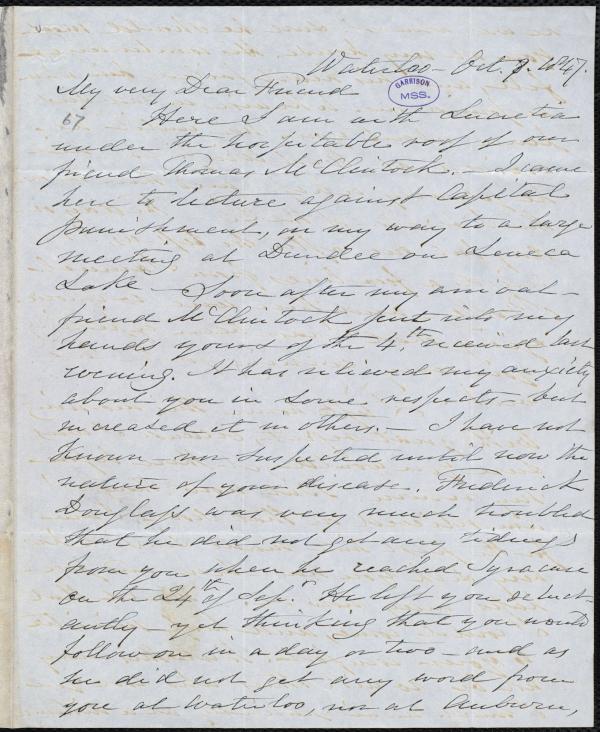 Waterloo - Oct. 8. 1847.
GARRISON
MSS.
My very Dear Friend
67
Here I am with Lucretia
under the hospitable roof of our
friend Thomas McClintock. - I came
here to lecture against Capital
Punishment, on my way to a large
meeting at Dundee on Seneca
Lake - Soon after my arrival -
friend McClintock put into my
hands yours of the 4th, received last
evening. It has relieved my anxiety
about you in some respects - but
increased it in others. - I have not
known - nor suspected until now the
nature of your disease. Frederick
Douglass was very much troubled
that he did not get any tidings
from you when he reached Syracuse
on the 24th of Sept. He left you reluct-
antly - yet thinking that you would
follow on in a day or two - and as
he did not get any word from
you at Waterloo, nor at Auburn,